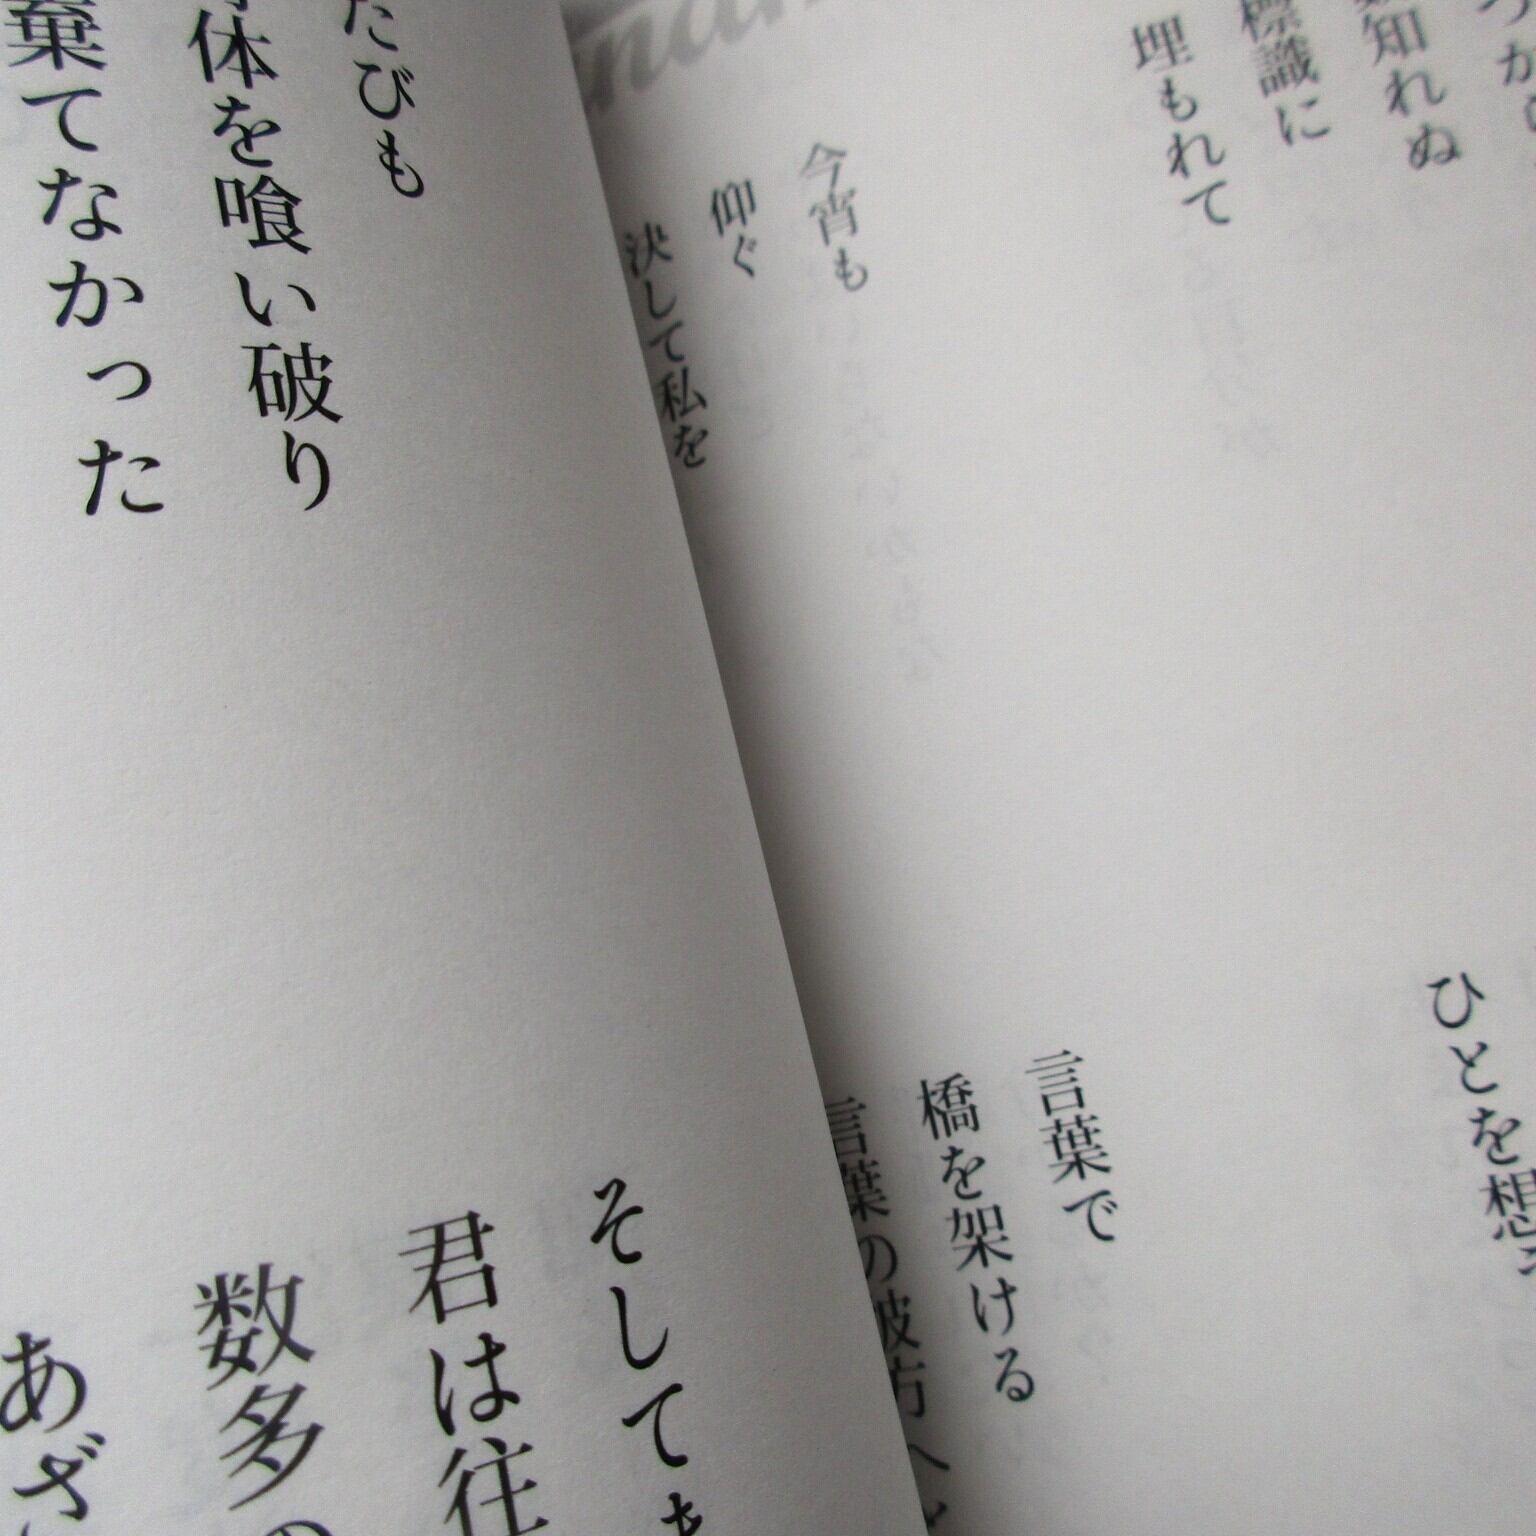 知れぬ
標識に
埋もれて
今宵も
仰ぐ
決して私を
ひとを想う
言葉で
橋を架ける
言葉の彼方へと
たびも
体を喰い破り
棄てなかった
そしても
君は往
数多の
あざ